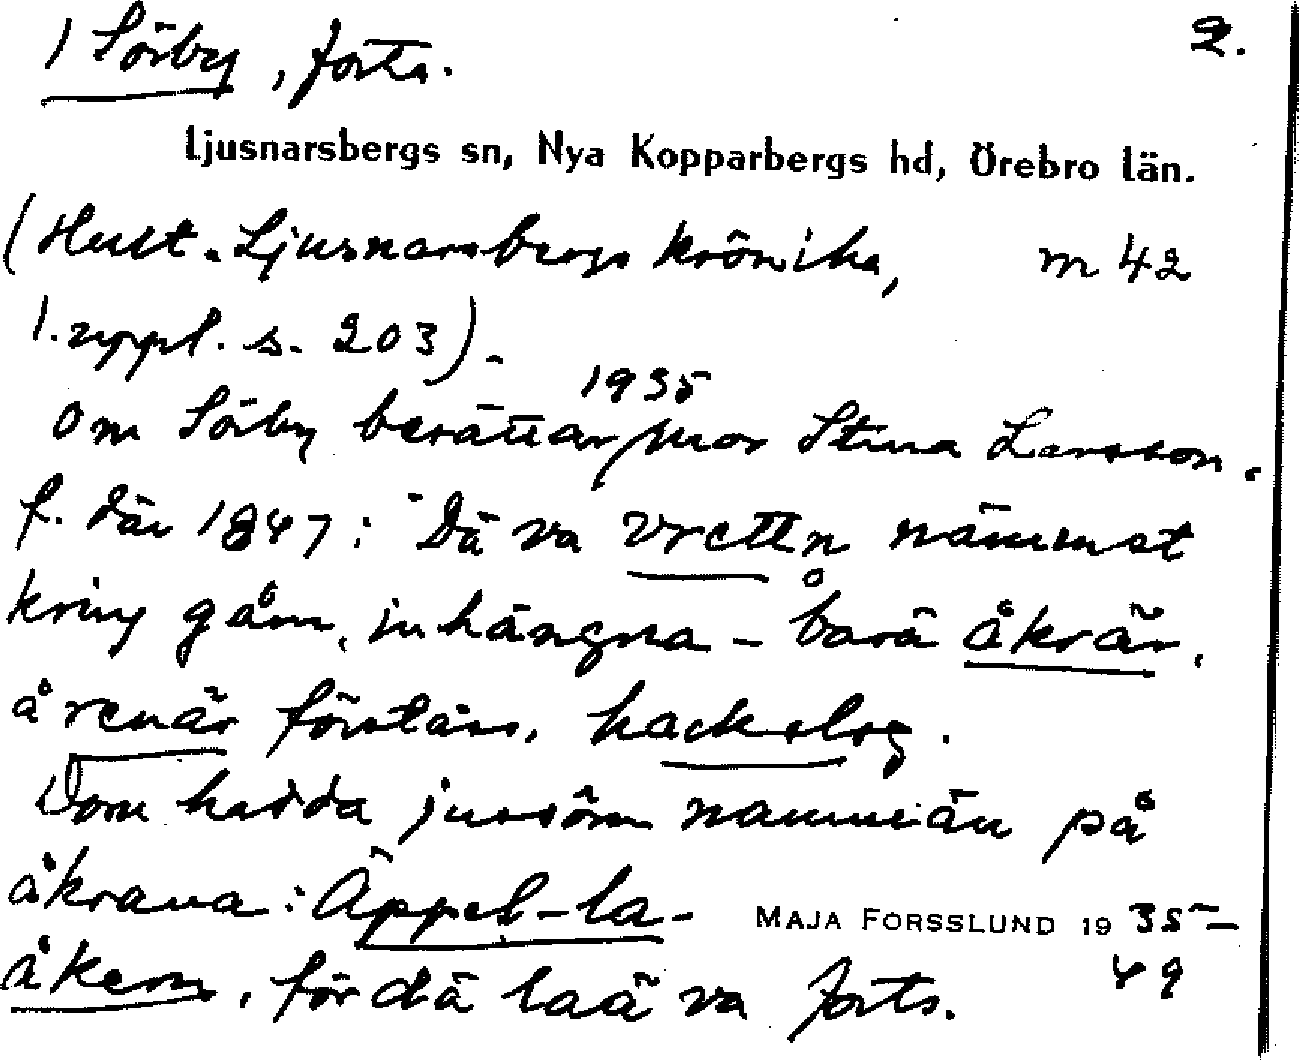 1 Sörby, forts. 2.
Ljusnarsbergs sn, Nya Kopparbergs hd, Örebro län.
(Hult. Ljusnarsbergs krönika, m 42
1. uppl. s. 203).-
1935
Om Sörby berättar mor Stina Larsson,
f. där 1847: "Dä va vrettn nämmst
kring gåm, inhängna - barå åkrär,
å renär förståss, hackslog.
Dom hadda jussom namnän på
åkrana: Äppel-la-
MAJA FORSSLUND 1935-
49
åkern, för dä laä va forts.